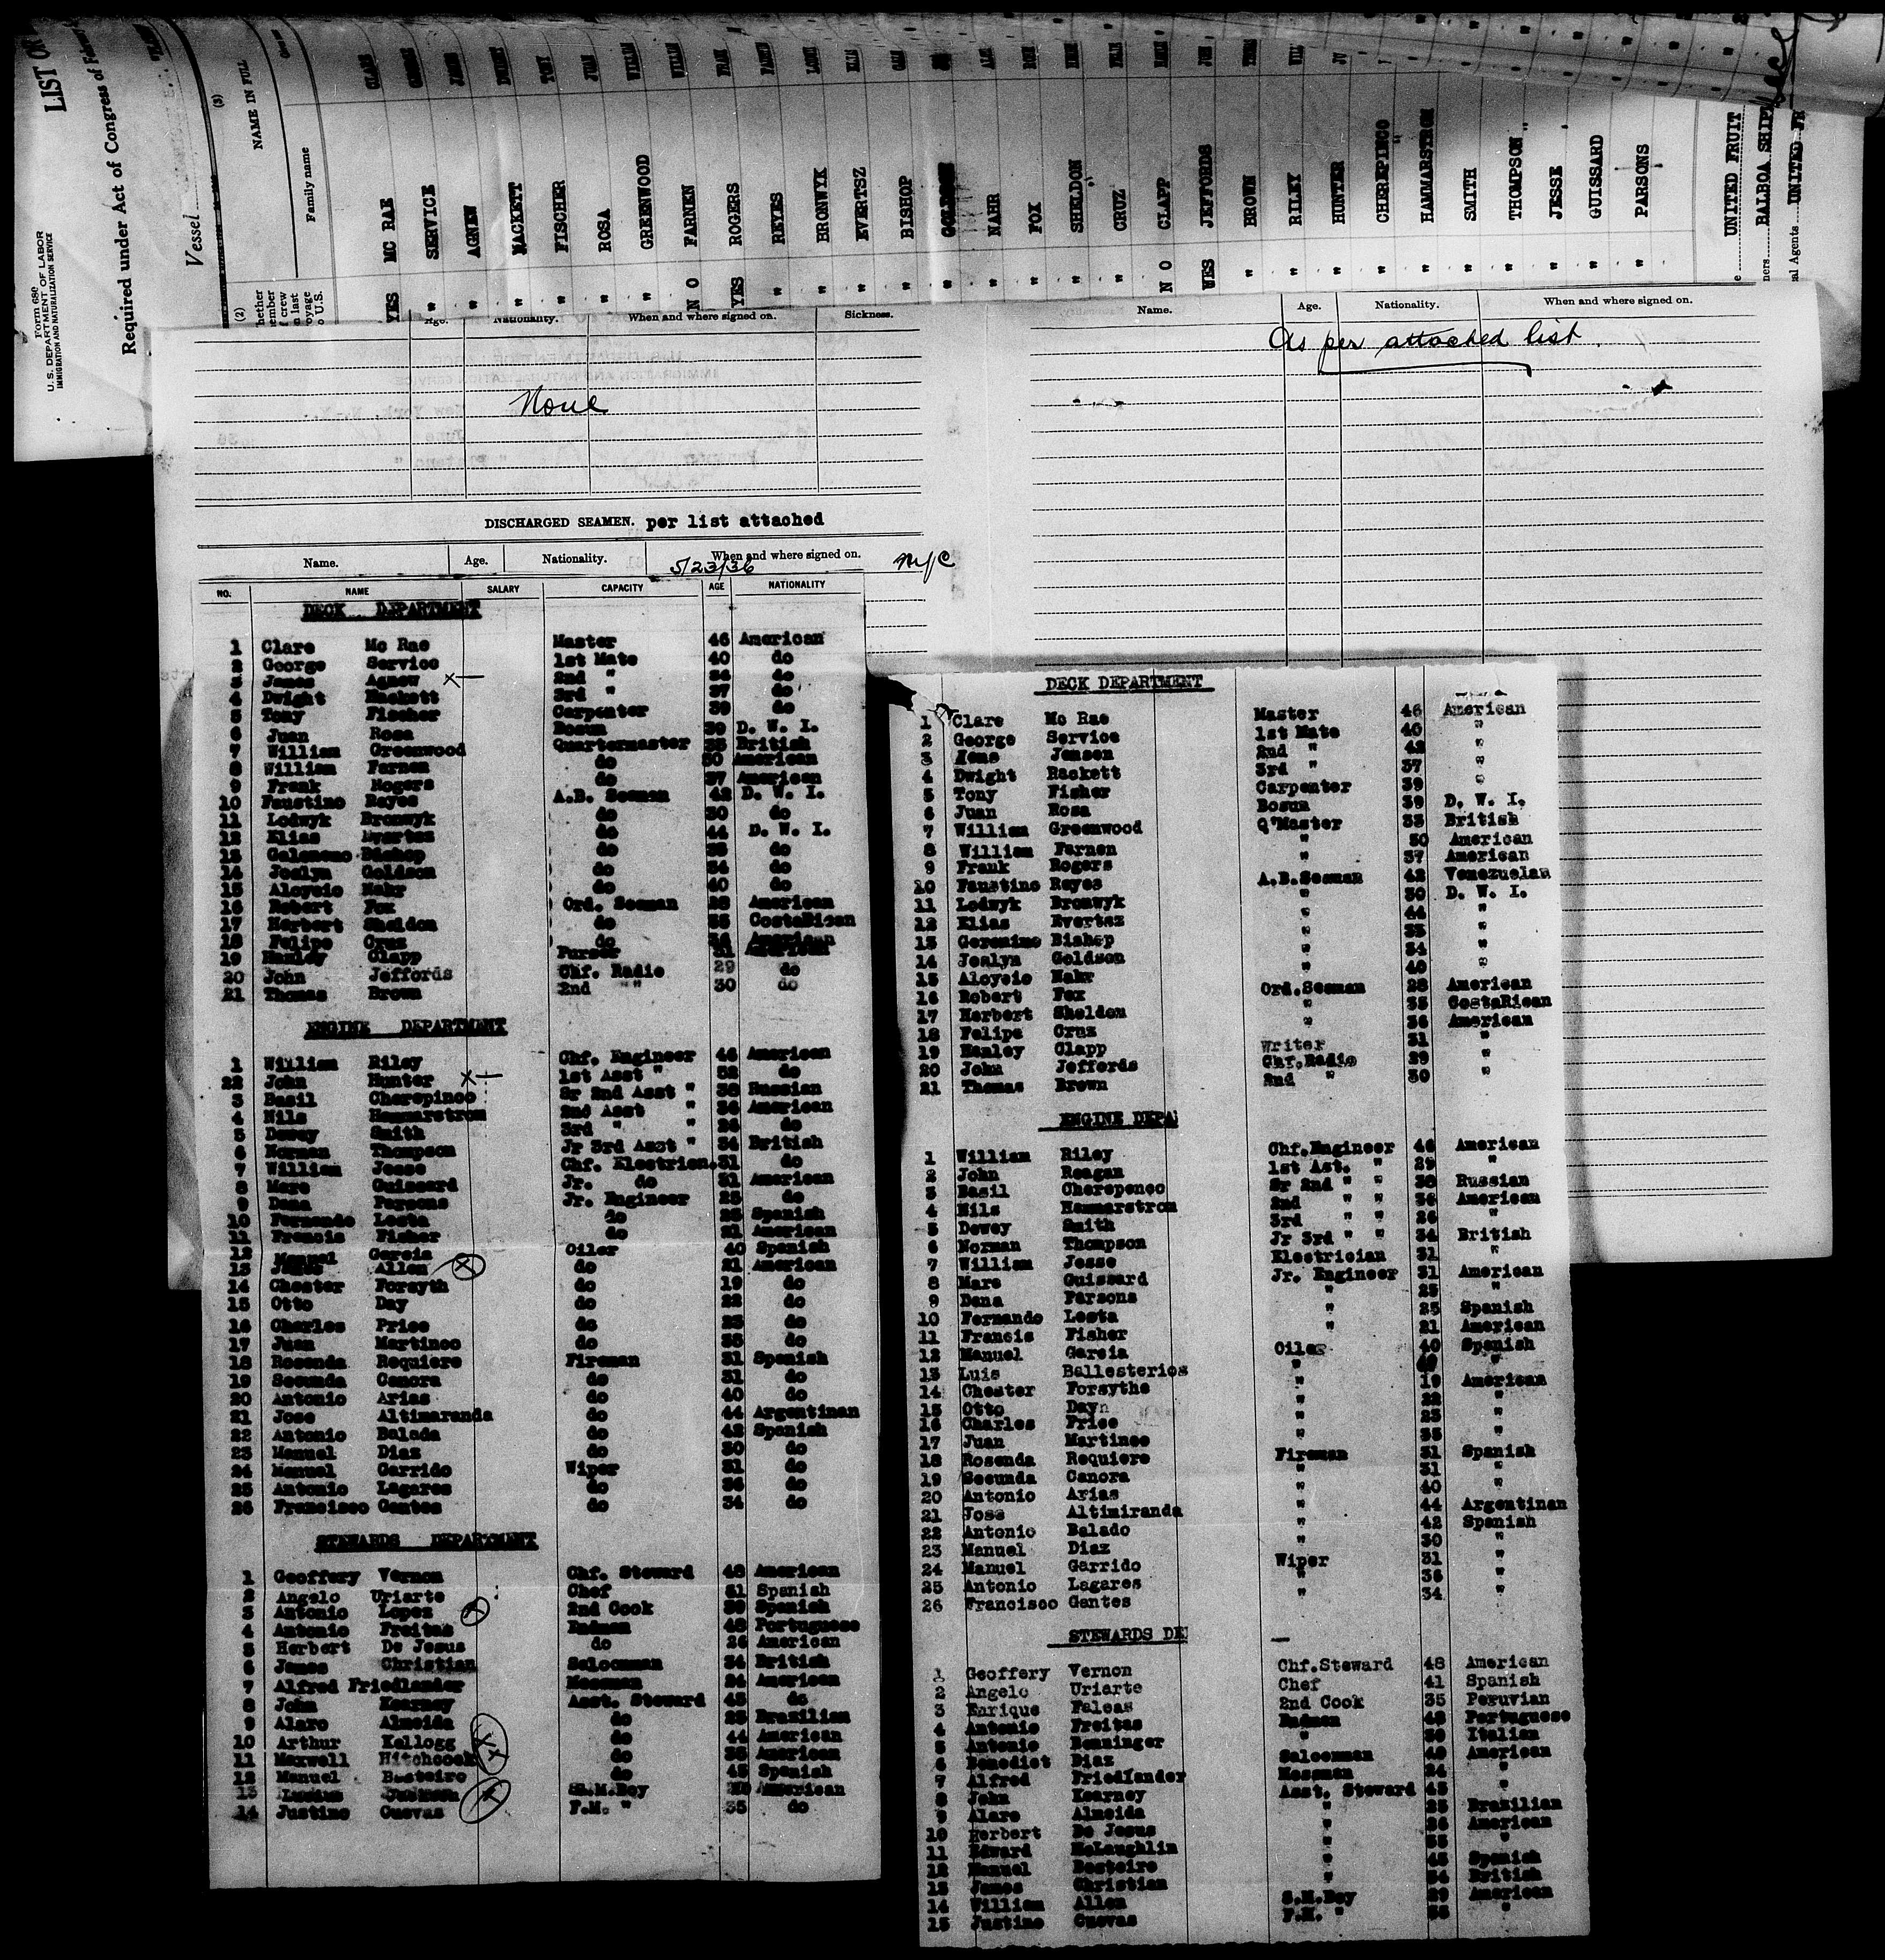 LIST OR
Form 680
U. S. DEPARTMENT OF LABOR
IMMIGRATION AND NATURALIZATION SERVICE
Required under Act of Congress of
Vessel
(3)
NAME IN FULL
Family name
(2)
YES MC RAE
" SERVICE
" AGNEW
" HACKETT
" FISCHER
" ROSA
" GREENWOOD
N O FARNEN
YES ROGERS
" REYES
" BRONWYK
" EVERTSZ
" BISHOP
" GOLDSON
" NAHR
" FOX
" SHELDON
" CRUZ
N O CLAPP
JEFFORDS
" BROWN
" RILEY
" HUNTER
" CHEREPINCO
" HAMMARSTROM
" SMITH
" THOMPSON
" JESSE
" GUISSARD
" PARSONS
UNITED FRUIT
BALBOA SHIP
al Agents UNITED FR
Age. Nationality. When and where signed on. Sickness.
None
DISCHARGED SEAMEN. per list attached
Name. Age. Nationality. When and where signed on.
5/23/36 NYC
Name. Age. Nationality. When and where signed on.
As per attached list
NO. NAME SALARY CAPACITY AGE NATIONALITY
DECK DEPARTMENT
1 Clare Mc Rae Master 46 American
2 George Service 1st Mate 40 do
3 James Agnew x— 2nd " 34 do
4 Dwight Hackett 3rd " 37 do
5 Tony Fischer Carpenter 39 do
6 Juan Rosa Bosun 39 D. W. I.
7 William Greenwood Quartermaster 35 British
8 William Farnen do 30 American
9 Frank Rogers do 37 American
10 Faustino Reyes A.B. Seaman 42 D. W. I.
11 Lodwyk Bronwyk do 30 do
12 Elias Evertsz do 44 D. W. I.
13 Bishop do 35 do
14 Joslyn Goldson do 34 do
15 Aloysio Nahr do 40 do
16 Robert Fox Ord. Seaman 28 American
17 Herbert Sheldon do 35 CostaRican
18 Felipe Cruz do American
19 Hanley Clapp Purser 31 American
20 John Jeffords Chf. Radio 29 do
21 Thomas Brown 2nd " " 30 do
ENGINE DEPARTMENT
1 William Riley Chf. Engineer 46 American
22 John Hunter x— 1st Asst " 32 do
3 Basil Cherepinco Sr 2nd Asst " 38 Russian
4 Nils Hammarstrom 2nd Asst " 36 American
5 Dewey Smith 3rd " " 26 do
6 Norman Thompson Jr 3rd Asst " 34 British
7 William Jesse Chf. Electrien. 31 do
8 Marc Guissard Jr. do 31 American
9 Dana Parsons Jr. Engineer 25 do
10 Fernando Lesta do 25 Spanish
11 Francis Fisher do 21 American
12 Manuel Garcia Oiler 40 Spanish
13 Allen x do 21 American
14 Chester Forsyth do 19 do
15 Otto Day do 22 do
16 Charles Price do 23 do
17 Juan Martinee do 35 do
18 Rosenda Requiere Fireman 31 Spanish
19 Secunda Canora do 31 do
20 Antonio Arias do 40 do
21 Jose Altimaranda do 44 Argentinan
22 Antonio Balada do 42 Spanish
23 Manuel Diaz do 30 do
24 Manuel Garrido Wiper 31 do
25 Antonio Lagares do 36 do
26 Francisco Gantes do 34 do
STEWARDS DEPARTMENT
1 Geoffery Vernon Chf. Steward 48 American
2 Angelo Uriarte Chef 51 Spanish
3 Antonio Lopez x 2nd Cook 39 Spanish
4 Antonio Freitas Badman 48 Portuguese
5 Herbert De Jesus do 26 American
6 James Christian Saloonman 34 British
7 Alfred Friedlander Messman 24 American
8 John Kearney Asst. Steward 45 do
9 Alaro Almeida do 25 Brazilian
10 Arthur Kellogg x do 44 American
11 Maxwell Hitchcock x do 35 American
12 Manuel Basteiro do 45 Spanish
13 x S.M.Boy American
14 Justino Cuevas F.M. " 35 do
DECK DEPARTMENT
1 Clare Mc Rae Master 46 American
2 George Service 1st Mate 40 "
3 Hans Jensen 2nd " 42 "
4 Dwight Hackett 3rd " 37 "
5 Tony Fisher Carpenter 39 "
6 Juan Rosa Bosun 39 D. W. I.
7 William Greenwood Q'Master 35 British
8 William Farnen " 30 American
9 Frank Rogers " 37 American
10 Faustino Reyes A.B.Seaman 42 Venezuelan
11 Lodwyk Bronwyk " 30 D. W. I.
12 Elias Evertsz " 44 "
13 Geronimo Bishop " 35 "
14 Joslyn Goldson " 34 "
15 Aloysio Nahr " 40 "
16 Robert Fox Ord.Seaman 28 American
17 Herbert Sheldon " 35 CostaRican
18 Felipe Cruz " 36 American
19 Hanley Clapp Writer 31 "
20 John Jeffords Chf.Radio 29 "
21 Thomas Brown 2nd " 30 "
ENGINE DEPA
1 William Riley Chf.Engineer 46 American
2 John Reagan 1st Ast. " 29 "
3 Basil Cherepenco Sr 2nd " " 38 Russian
4 Nils Hammarstrom 2nd " " 36 American
5 Dewey Smith 3rd " " 26 "
6 Norman Thompson Jr 3rd " " 34 British
7 William Jesse Electrician 31 "
8 Marc Guissard Jr. Engineer 31 American
9 Dana Parsons " 25 "
10 Fernando Lesta " 25 Spanish
11 Francis Fisher " 21 American
12 Manuel Garcia Oiler 40 Spanish
13 Luis Ballesterios " "
14 Chester Forsythe " 19 American
15 Otto Dayn " 22 "
16 Charles Price " 23 "
17 Juan Martinee " 35 "
18 Rosenda Requiere Fireman 31 Spanish
19 Secunda Canora " 31 "
20 Antonio Arias " 40 "
21 Jose Altimiranda " 44 Argentinan
22 Antonio Balado " 42 Spanish
23 Manuel Diaz " 30 "
24 Manuel Garrido Wiper 31 "
25 Antonio Lagares " 36 "
26 Francisco Gantes " 34 "
STEWARDS DE
1 Geoffery Vernon Chf.Steward 48 American
2 Angelo Uriarte Chef 41 Spanish
3 Enrique Faleas 2nd Cook 35 Peruvian
4 Antonio Freitas Badman 48 Portuguese
5 Antonio Benninger " 39 Italian
6 Benedict Diaz Saloonman 49 American
7 Alfred Friedlander Messman 24 "
8 John Kearney Asst. Steward 45 "
9 Alaro Almeida " 25 Brazilian
10 Herbert De Jesus " 26 American
11 Edward McLaughlin " 35 "
12 Manuel Basteiro " 45 Spanish
13 James Christian " 34 British
14 William Allen S.M.Boy 29 American
15 Justino Cuevas F.M. " 35 "